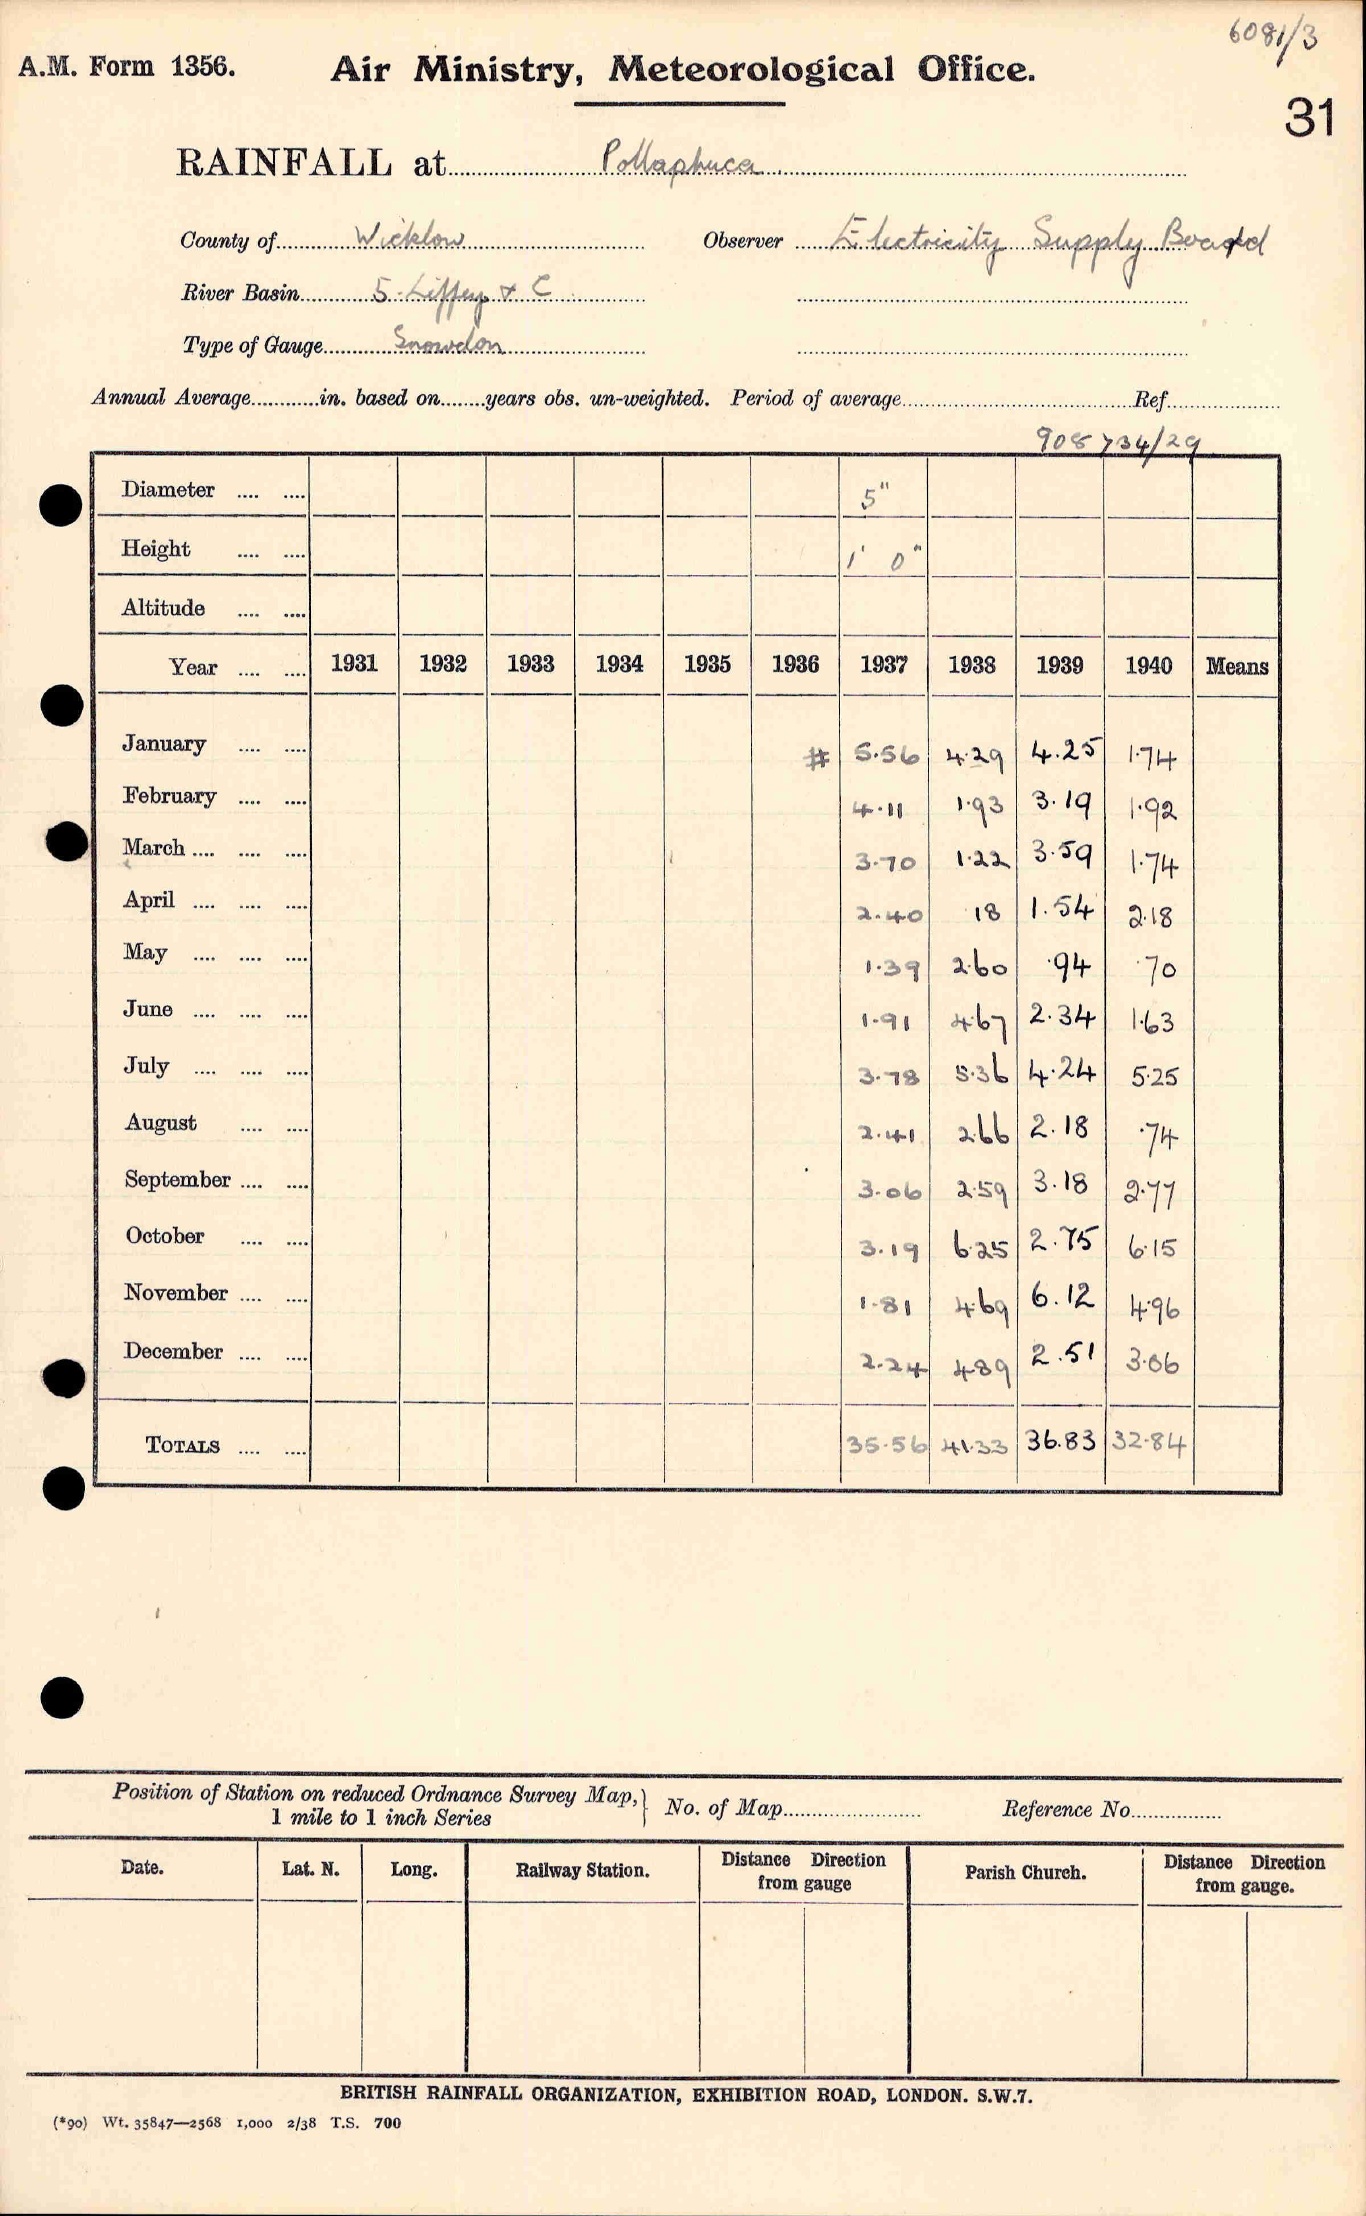 6081/3
A.M. Form 1356. Air Ministry, Meteorological Office.
31
RAINFALL at Pollaphuca
County of Wicklow Observer Electricity Supply Board
River Basin 5. Liffey & C
Type of Gauge Snowdon
Annual Average in. based on years obs. un-weighted. Period of average Ref
908 734/29
Diameter 5"
Height 1' 0"
Altitude
Year 1931 1932 1933 1934 1935 1936 1937 1938 1939 1940 Means
January # 5.56 4.29 4.25 1.74
February 4.11 1.93 3.19 1.92
March 3.70 1.22 3.59 1.74
April 2.40 18 1.54 2.18
May 1.39 2.60 .94 .70
June 1.91 4.67 2.34 1.63
July 3.78 5.36 4.24 5.25
August 2.41 2.66 2.18 .74
September 3.06 2.59 3.18 2.77
October 3.19 6.25 2.75 6.15
November 1.81 4.69 6.12 4.96
December 2.24 4.89 2.51 3.06
TOTALS 35.56 41.33 36.83 32.84
Position of Station on reduced Ordnance Survey Map, 1 mile to 1 inch Series } No. of Map Reference No
Date. Lat. N. Long. Railway Station. Distance Direction from gauge Parish Church. Distance Direction from gauge.
BRITISH RAINFALL ORGANIZATION, EXHIBITION ROAD, LONDON. S.W.7.
(*90) Wt. 35847—2568 1,000 2/38 T.S. 700